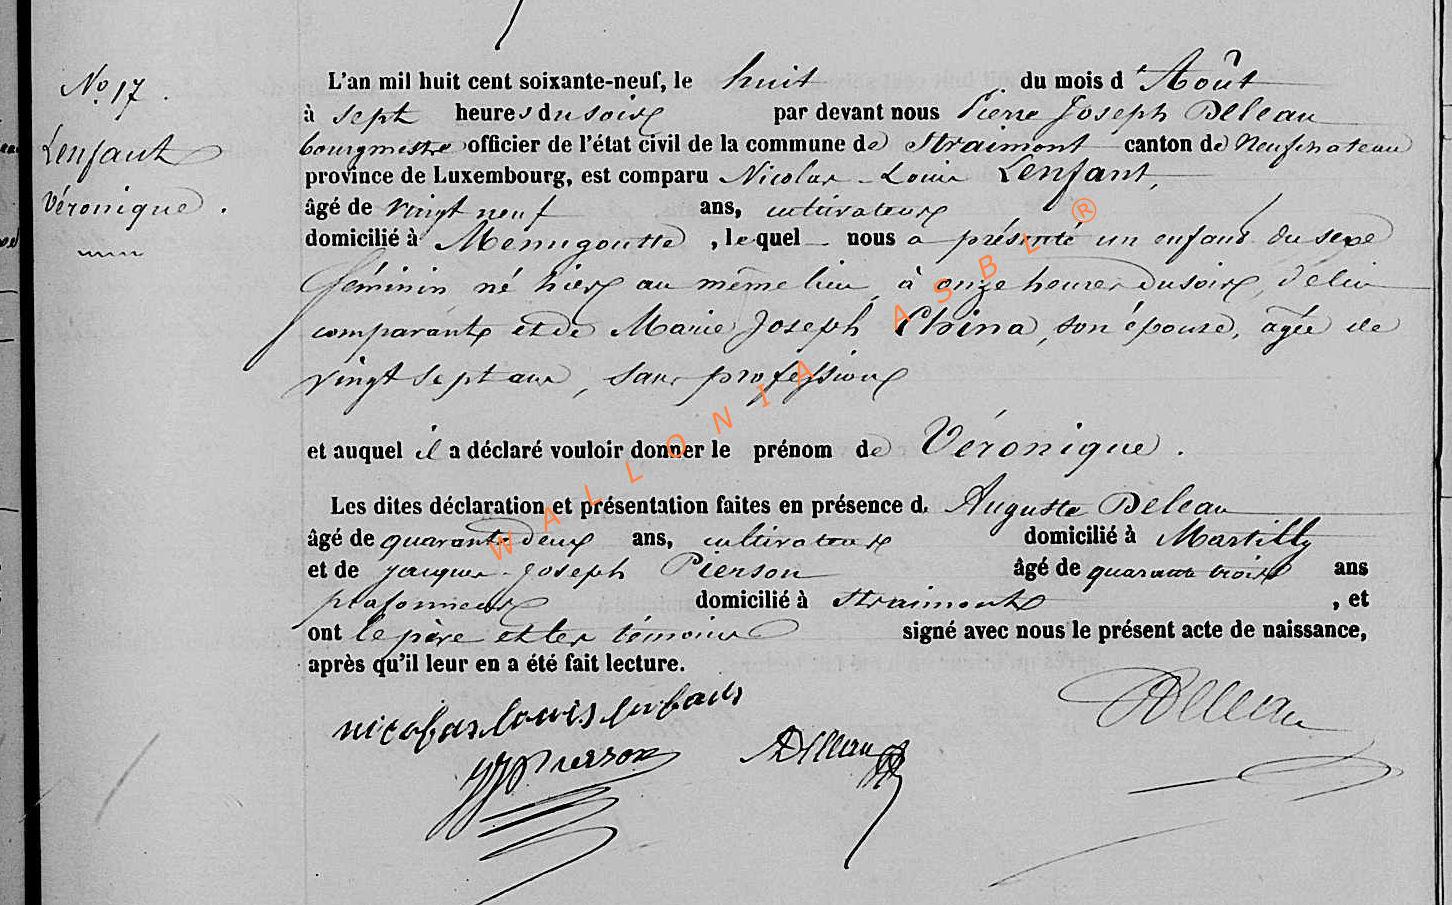 No 17.
Lenfant
Véronique.
L'an mil huit cent soixante-neuf, le huit du mois d'Août
à sept heures du soir par devant nous Pierre Joseph Deleau
bourgmestre officier de l'état civil de la commune de Straimont canton de Neufchateau
province de Luxembourg, est comparu Nicolas Louis Lenfant,
âgé de vingt neuf ans, cultivateur
domicilié à Menugoutte, lequel nous a présenté un enfant du sexe
féminin né hier au même lieu, à onze heures du soir, de lui
comparant et de Marie Joseph China, son épouse, âgée de
vingt sept ans, sans profession
et auquel il a déclaré vouloir donner le prénom de Véronique.
Les dites déclaration et présentation faites en présence d. Auguste Deleau
âgé de quarante deux ans, cultivateur domicilié à Martilly
et de Jacques Joseph Pierson âgé de quarante trois ans
plafonneur domicilié à Straimont, et
ont le père et les témoins signé avec nous le présent acte de naissance,
après qu'il leur en a été fait lecture.
nicolas louis lenfant
JJPierson ADeleau Deleau
WALLONIA ASBL ®